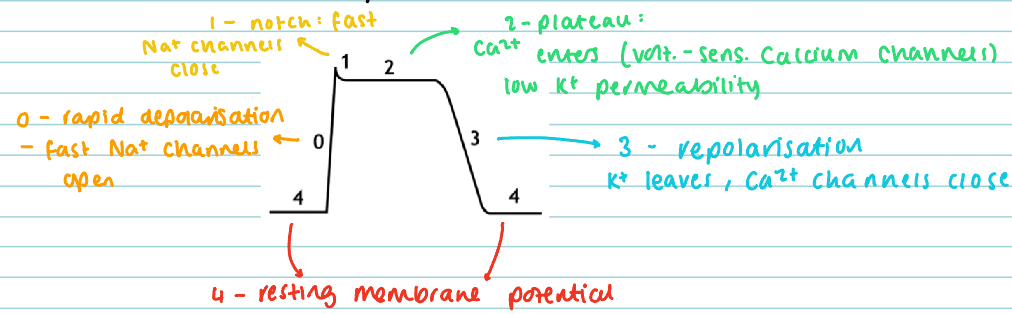 1 - notch: fast
Na+ channels
close
2 - plateau:
Ca2+
enters (volt.-sens. Calcium channels)
low K+ permeability
1
2
0 - rapid depolarisation
- fast Na+ channels
open
0
3
3 - repolarisation
K+ leaves, Ca2+ channels close
4
4
4 - resting membrane potential